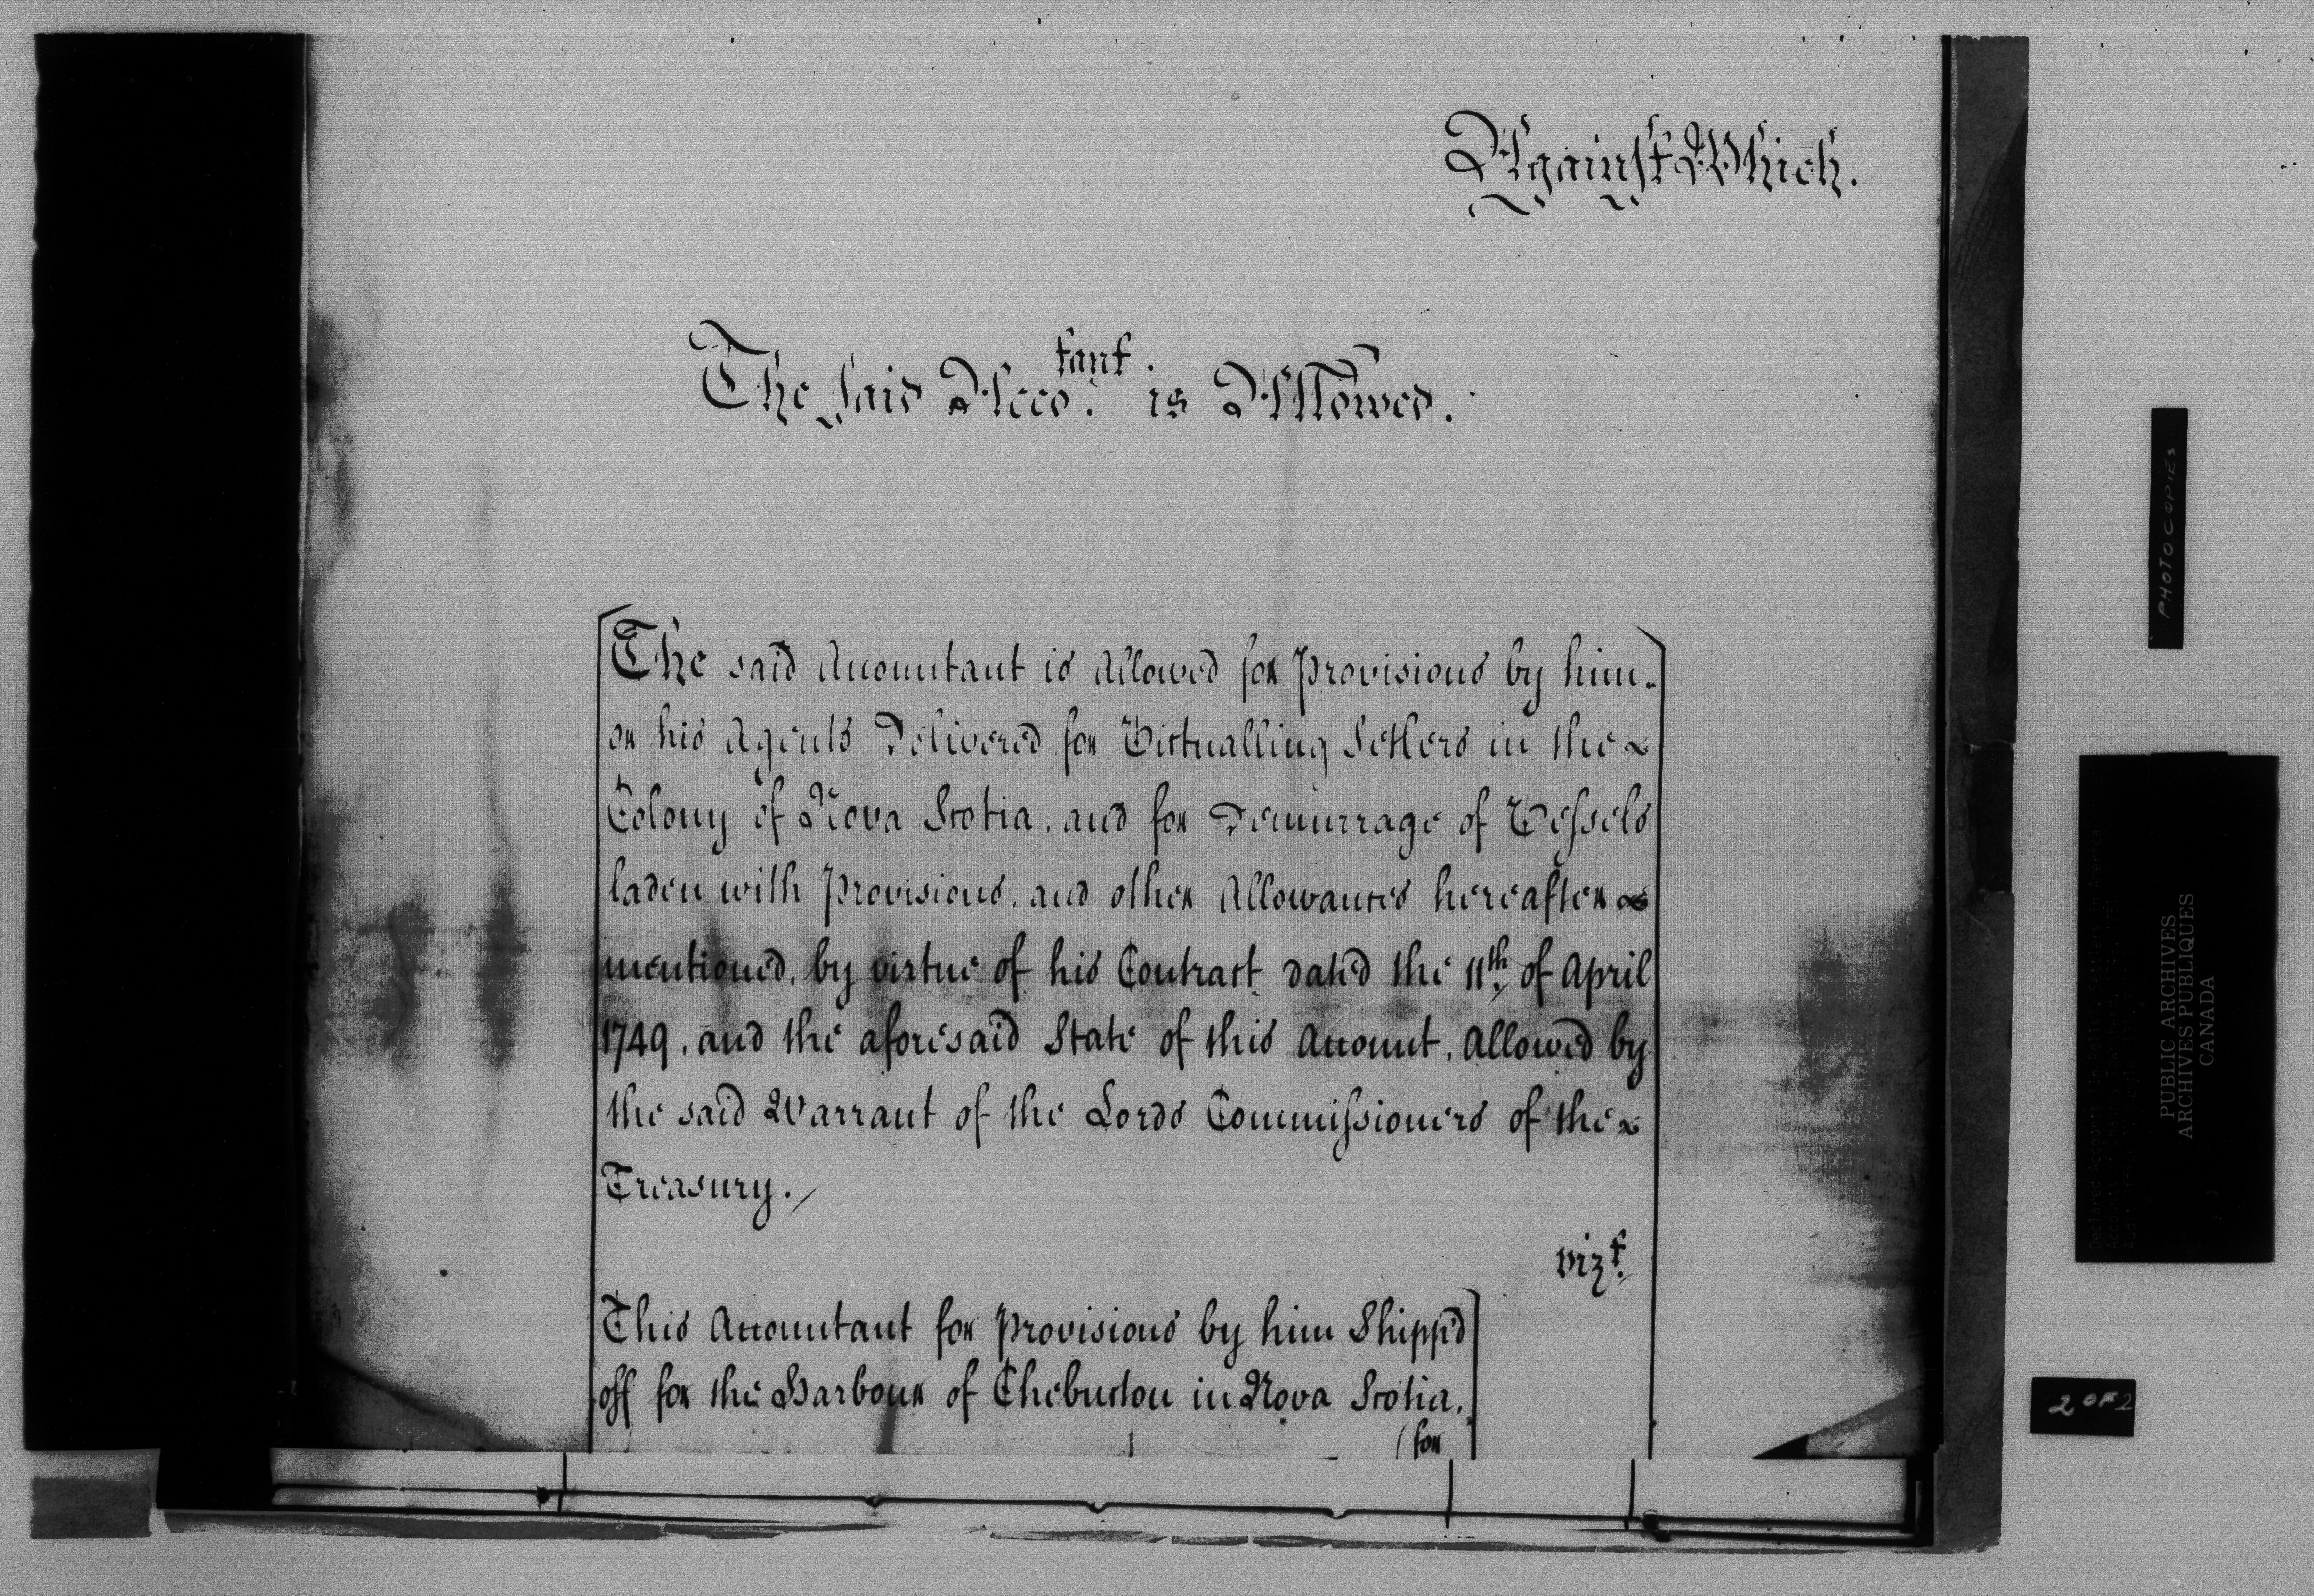 Against Which.
The said Acco.tant is Allowed.
The said Accountant is Allowed for Provisions by him
or his Agents Delivered for Victualling Setlers in the
Colony of Nova Scotia, and for Demurrage of Vessels
laden with Provisions, and other Allowances hereafter
mentioned, by virtue of his Contract dated the 11th. of April
1749, and the aforesaid State of this Account, Allowed by
the said Warrant of the Lords Commissioners of the
Treasury./
vizt.
This Accountant for Provisions by him Shipp'd
off for the Harbour of Chebucton in Nova Scotia,
(for
PHOTOCOPIES
PUBLIC ARCHIVES
ARCHIVES PUBLIQUES
CANADA
2 OF 2